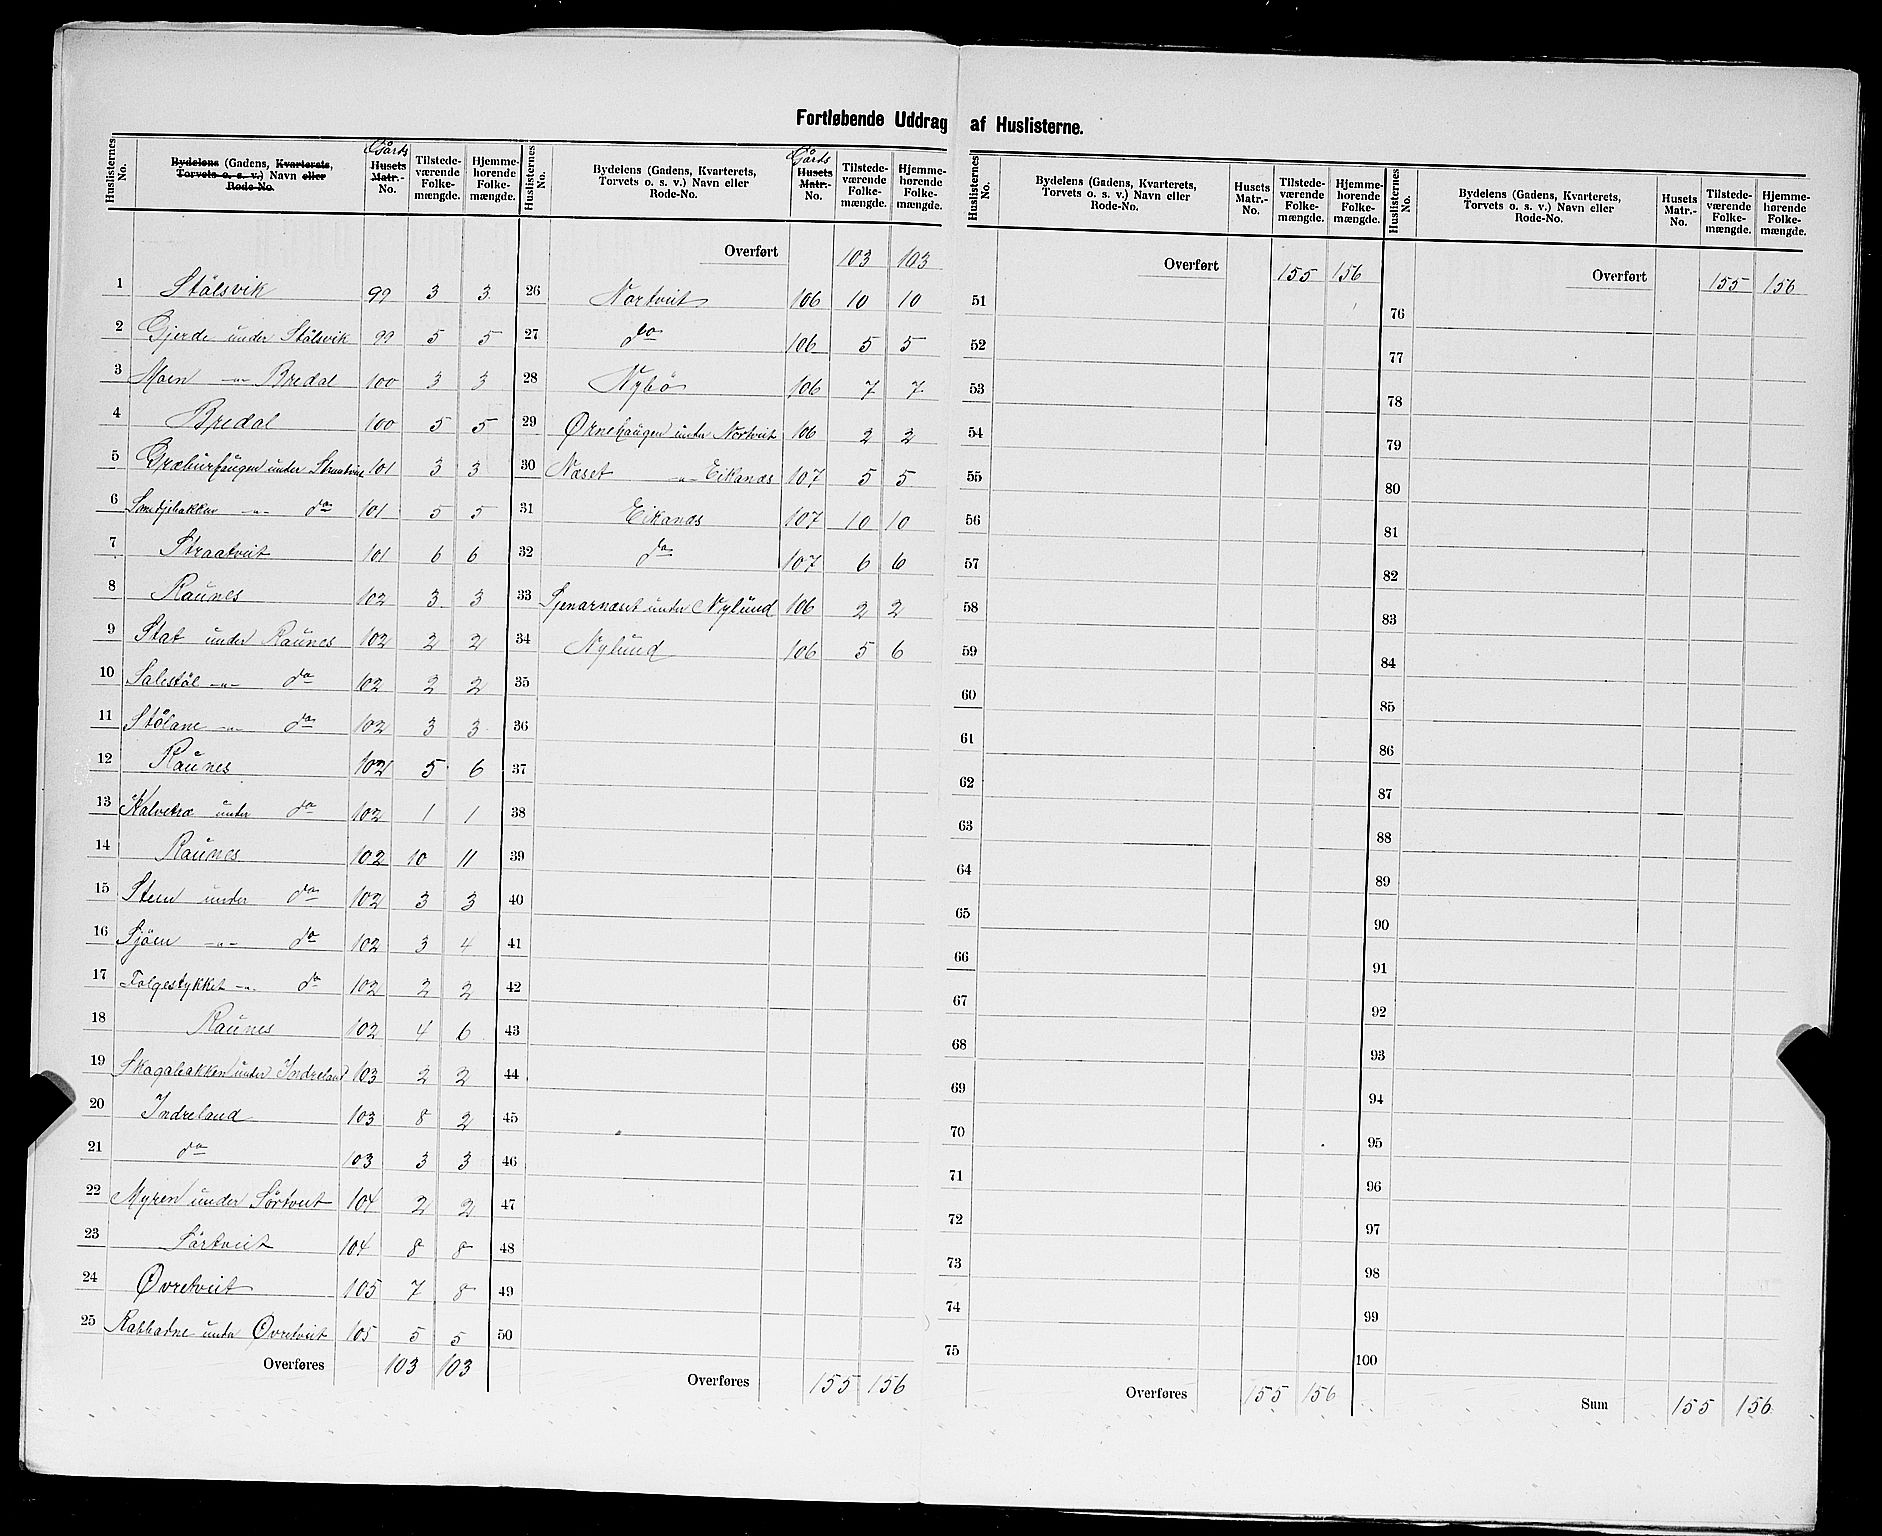 Fortløbende Uddrag af Huslisterne.
Huslisternes No. | Bydelens (Gadens, Kvarterets, Torvets o. s. v.) Navn eller Rode-No. | Gårds Husets Matr.-No. | Tilstedeværende Folkemængde. | Hjemmehørende Folkemængde.
1 Stölsvik 99 3 3
2 Gjerde under Stölsvik 99 5 5
3 Moen -"- Bredal 100 3 3
4 Bredal 100 5 5
5 under Straatveit 101 3 3
6 Smedjebakken -"- do 101 5 5
7 Straatveit 101 6 6
8 Raunes 102 3 3
9 Stat under Raunes 102 2 2
10 Salestöl -"- do 102 2 2
11 Stölane -"- do 102 3 3
12 Raunes 102 5 6
13 Kalvetræ under do 102 1 1
14 Raunes 102 10 11
15 Steen under do 102 3 3
16 Sjöen -"- do 102 3 4
17 Folgestykket -"- do 102 2 2
18 Raunes 102 4 6
19 Skagabakken under Indreland 103 2 2
20 Indreland 103 8 2
21 do 103 3 3
22 Myren under Sörtveit 104 2 2
23 Sörtveit 104 8 8
24 Øvretveit 105 7 8
25 under Øvretveit 105 5 5
Overføres 103 103
Huslisternes No. | Bydelens (Gadens, Kvarterets, Torvets o. s. v.) Navn eller Rode-No. | Gårds Husets Matr.-No. | Tilstedeværende Folkemængde. | Hjemmehørende Folkemængde.
Overført 103 103
26 Nortveit 106 10 10
27 do 106 5 5
28 Nybö 106 7 7
29 Ørnehaugen under Nortveit 106 2 2
30 Næset -"- Eikanæs 107 5 5
31 Eikanæs 107 10 10
32 do 107 6 6
33 under Nylund 106 2 2
34 Nylund 106 5 6
35
36
37
38
39
40
41
42
43
44
45
46
47
48
49
50
Overføres 155 156
Huslisternes No. | Bydelens (Gadens, Kvarterets, Torvets o. s. v.) Navn eller Rode-No. | Husets Matr.-No. | Tilstedeværende Folkemængde. | Hjemmehørende Folkemængde.
Overført 155 156
51
52
53
54
55
56
57
58
59
60
61
62
63
64
65
66
67
68
69
70
71
72
73
74
75
Overføres 155 156
Huslisternes No. | Bydelens (Gadens, Kvarterets, Torvets o. s. v.) Navn eller Rode-No. | Husets Matr.-No. | Tilstedeværende Folkemængde. | Hjemmehørende Folkemængde.
Overført 155 156
76
77
78
79
80
81
82
83
84
85
86
87
88
89
90
91
92
93
94
95
96
97
98
99
100
Sum 155 156